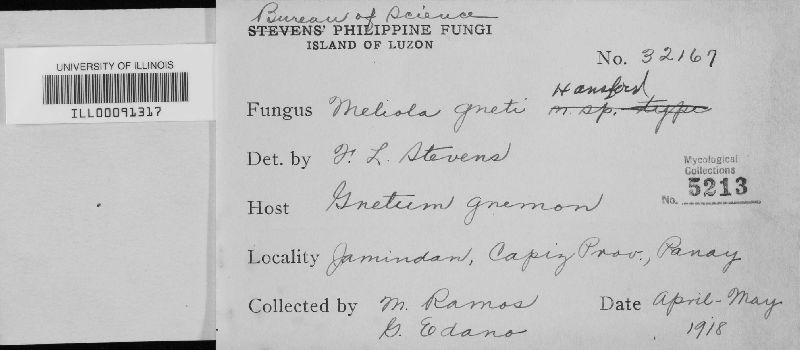 UNIVERSITY OF ILLINOIS
ILL00091317
Bureau of Science
STEVENS' PHILIPPINE FUNGI
ISLAND OF LUZON
No. 32167
Hansford
Fungus Meliola gneti n. sp. type
Det. by F. L. Stevens
Mycological
Collections
No. 5213
Host Gnetum gnemon
Locality Jamindan, Capiz Prov., Panay
Collected by M. Ramos Date April-May
G. Edano 1918